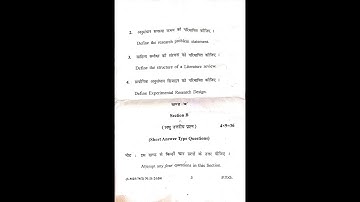 2. अनुसंधान समस्या कथन को परिभाषित कीजिए ।
Define the research problem statement.
3. साहित्य समीक्षा की संरचना को परिभाषित कीजिए ।
Define the structure of a Literature review.
4. प्रयोगिक अनुसंधान डिजाइन को परिभाषित कीजिए ।
Define Experimental Research Design.
खण्ड 'ब'
Section B
(लघु उत्तरीय प्रश्न) 4×9=36
(Short Answer Type Questions)
नोट : इस खण्ड से किन्हीं चार प्रश्नों के उत्तर दीजिए ।
Attempt any four questions in this Section.
2 P.T.O.